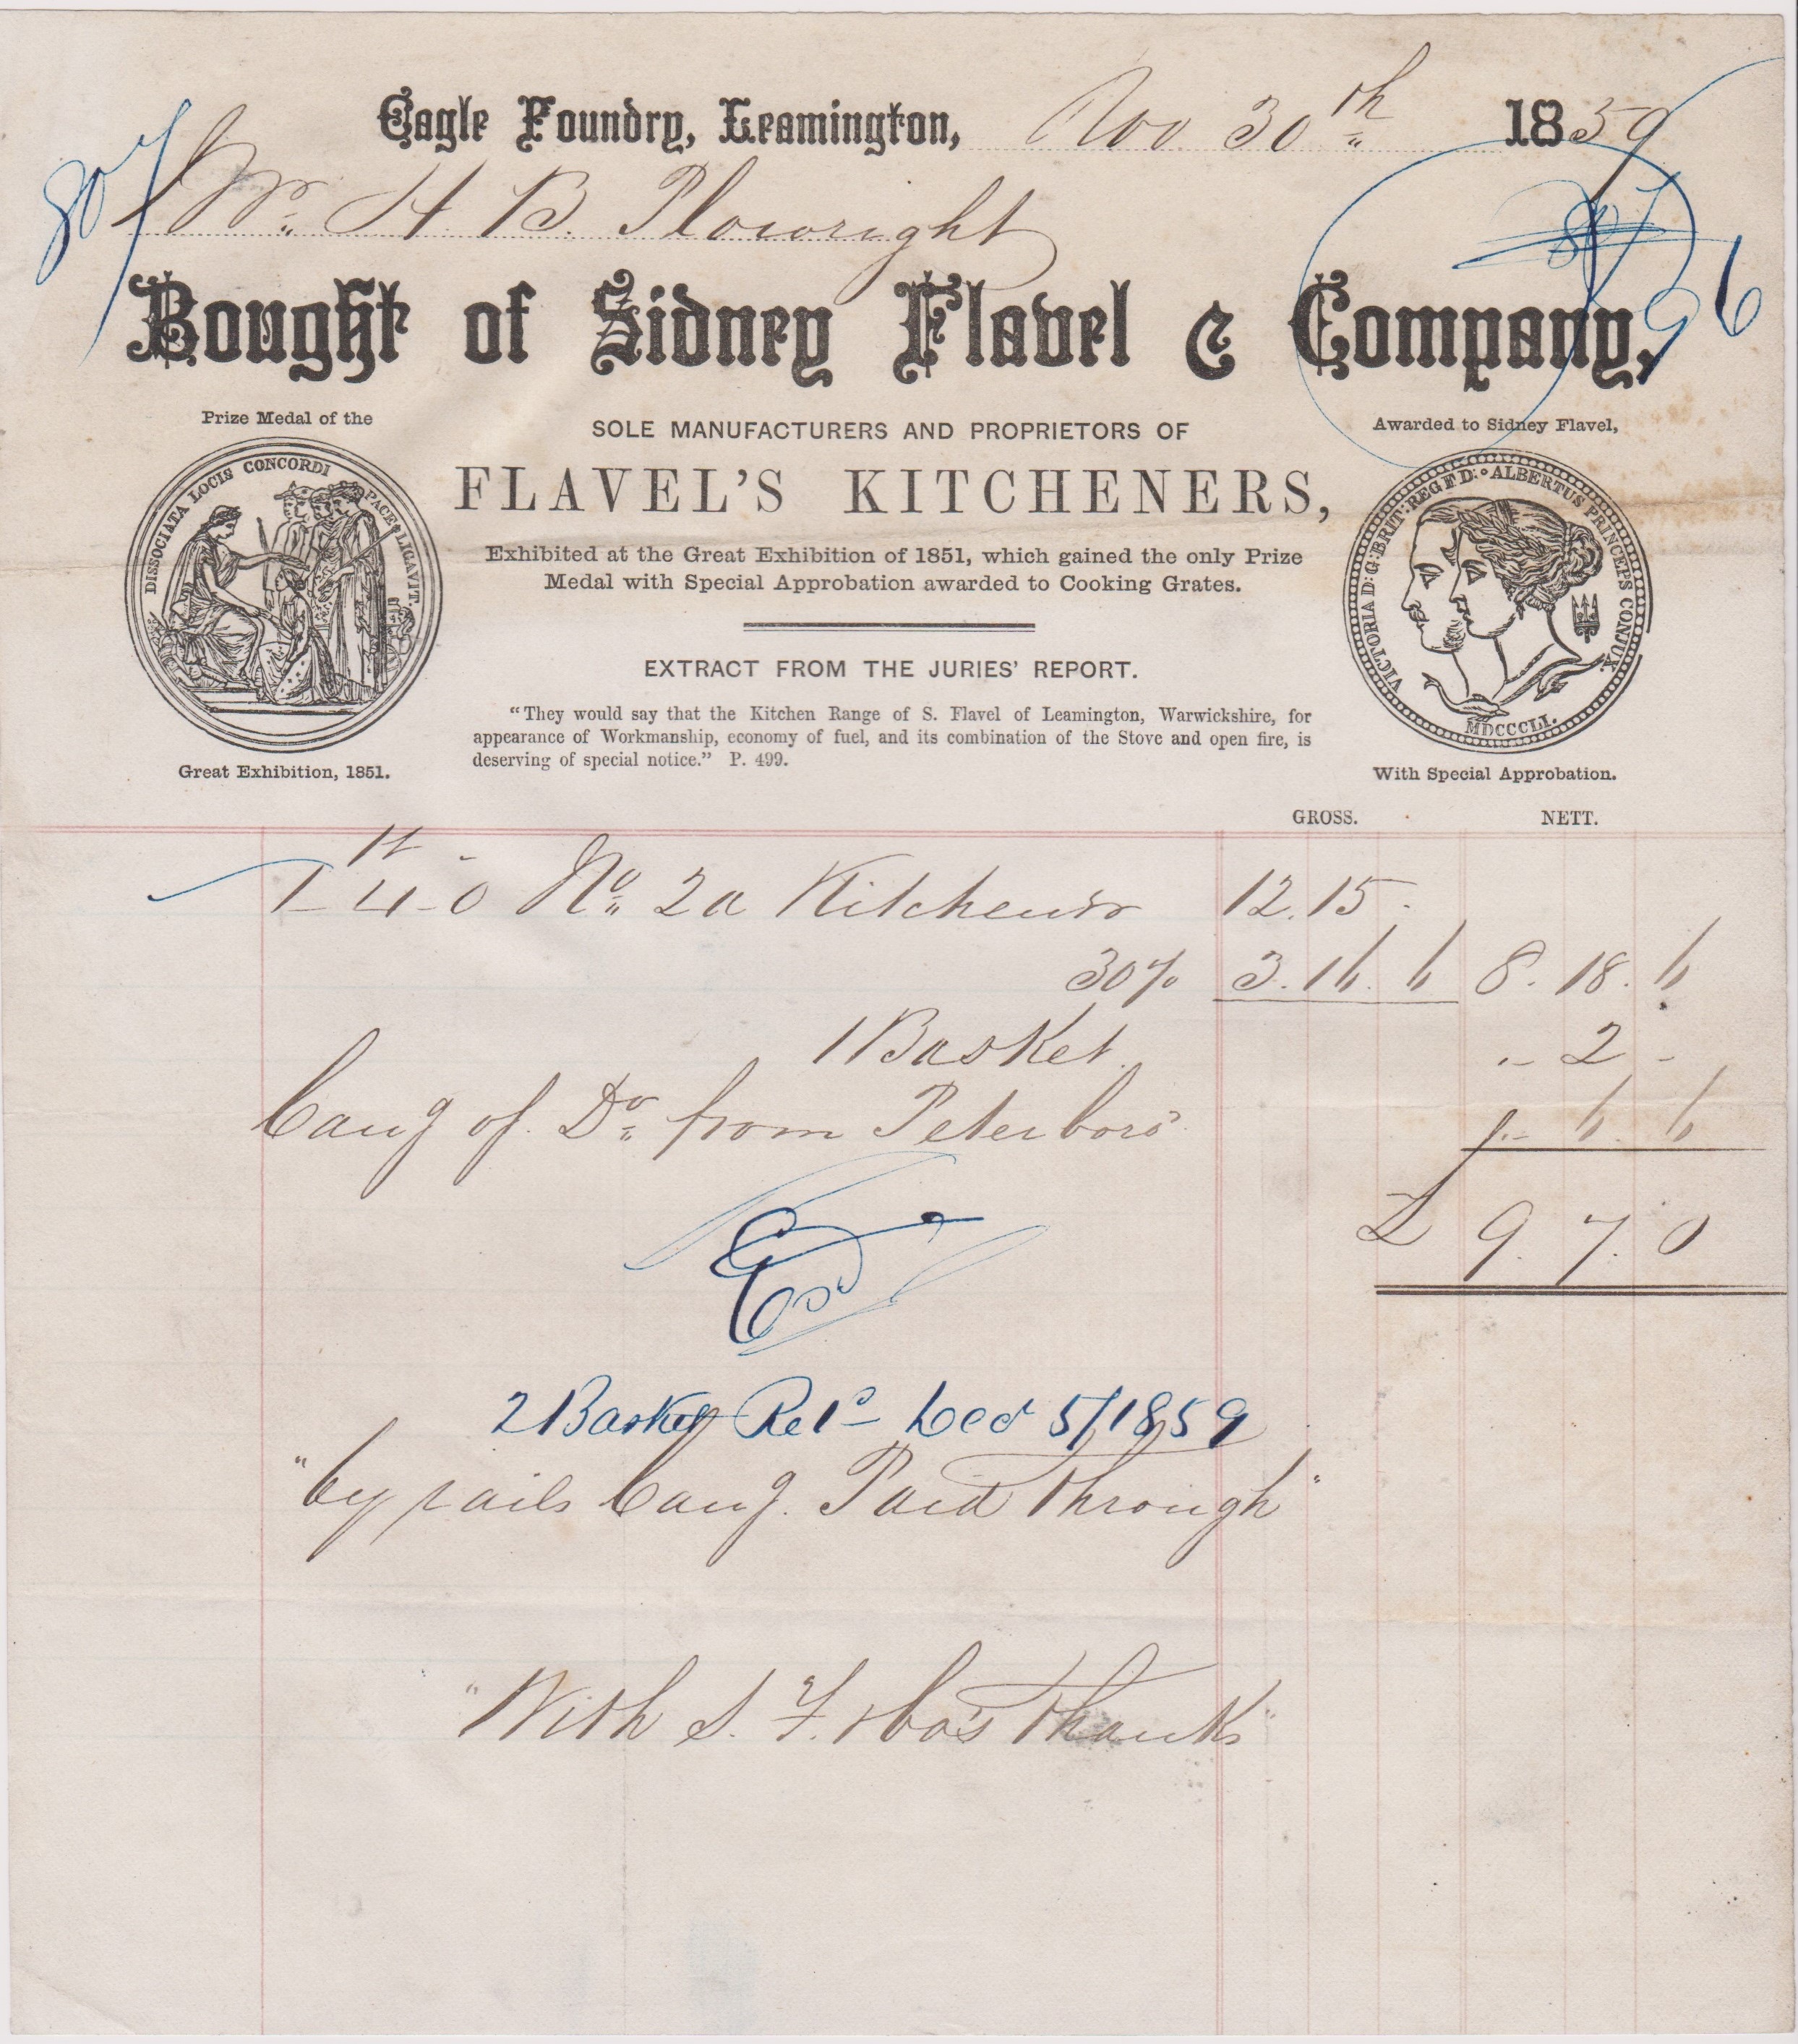 Eagle Foundry, Leamington, Nov. 30th 1859
807
Mr. H. B. Plowright
807
96
Bought of Sidney Flavel & Company,
Prize Medal of the
DISSOCIATA LOCIS CONCORDI PACE LIGAVIT.
Great Exhibition, 1851.
SOLE MANUFACTURERS AND PROPRIETORS OF
FLAVEL'S KITCHENERS,
Exhibited at the Great Exhibition of 1851, which gained the only Prize
Medal with Special Approbation awarded to Cooking Grates.
EXTRACT FROM THE JURIES' REPORT.
"They would say that the Kitchen Range of S. Flavel of Leamington, Warwickshire, for
appearance of Workmanship, economy of fuel, and its combination of the Stove and open fire, is
deserving of special notice." P. 499.
Awarded to Sidney Flavel,
VICTORIA D:G:BRIT:REG F D: ALBERTUS PRINCEPS CONJUX.
MDCCCLI.
With Special Approbation.
GROSS. NETT.
1 4-0 No. 2a Kitchener 12.15.-
30% 3.16.6 8.18.6
1 Basket. .-2-
Carrg of Do. from Peterboro' .-6.6
£ 9.7.0
2 Baskets Retd Decr 5/1859
"by rails Carrg. Paid through"
"With S. F. & Co's Thanks"